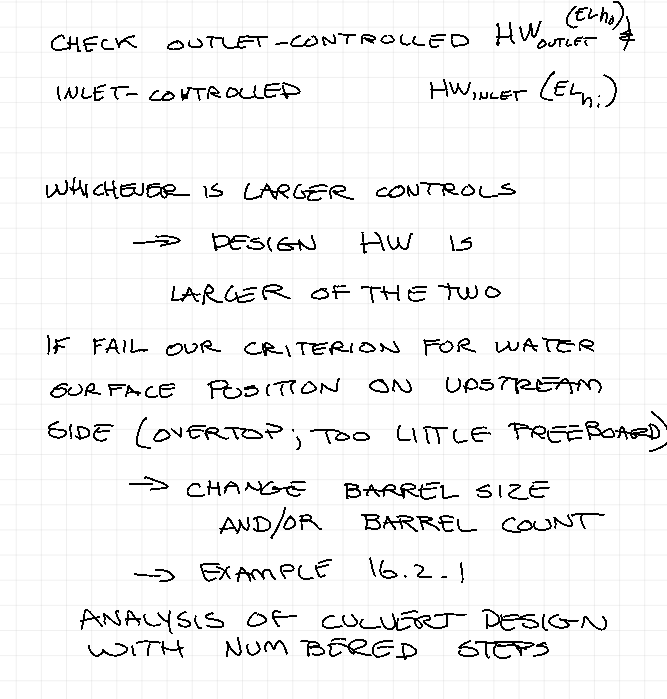 CHECK OUTLET-CONTROLLED HW OUTLET (ELho) &
INLET-CONTROLLED HW INLET (ELhi)
WHICHEVER IS LARGER CONTROLS
→ DESIGN HW IS
LARGER OF THE TWO
IF FAIL OUR CRITERION FOR WATER
SURFACE POSITION ON UPSTREAM
SIDE (OVERTOP; TOO LITTLE FREEBOARD)
→ CHANGE BARREL SIZE
AND/OR BARREL COUNT
→ EXAMPLE 16.2.1
ANALYSIS OF CULVERT DESIGN
WITH NUMBERED STEPS